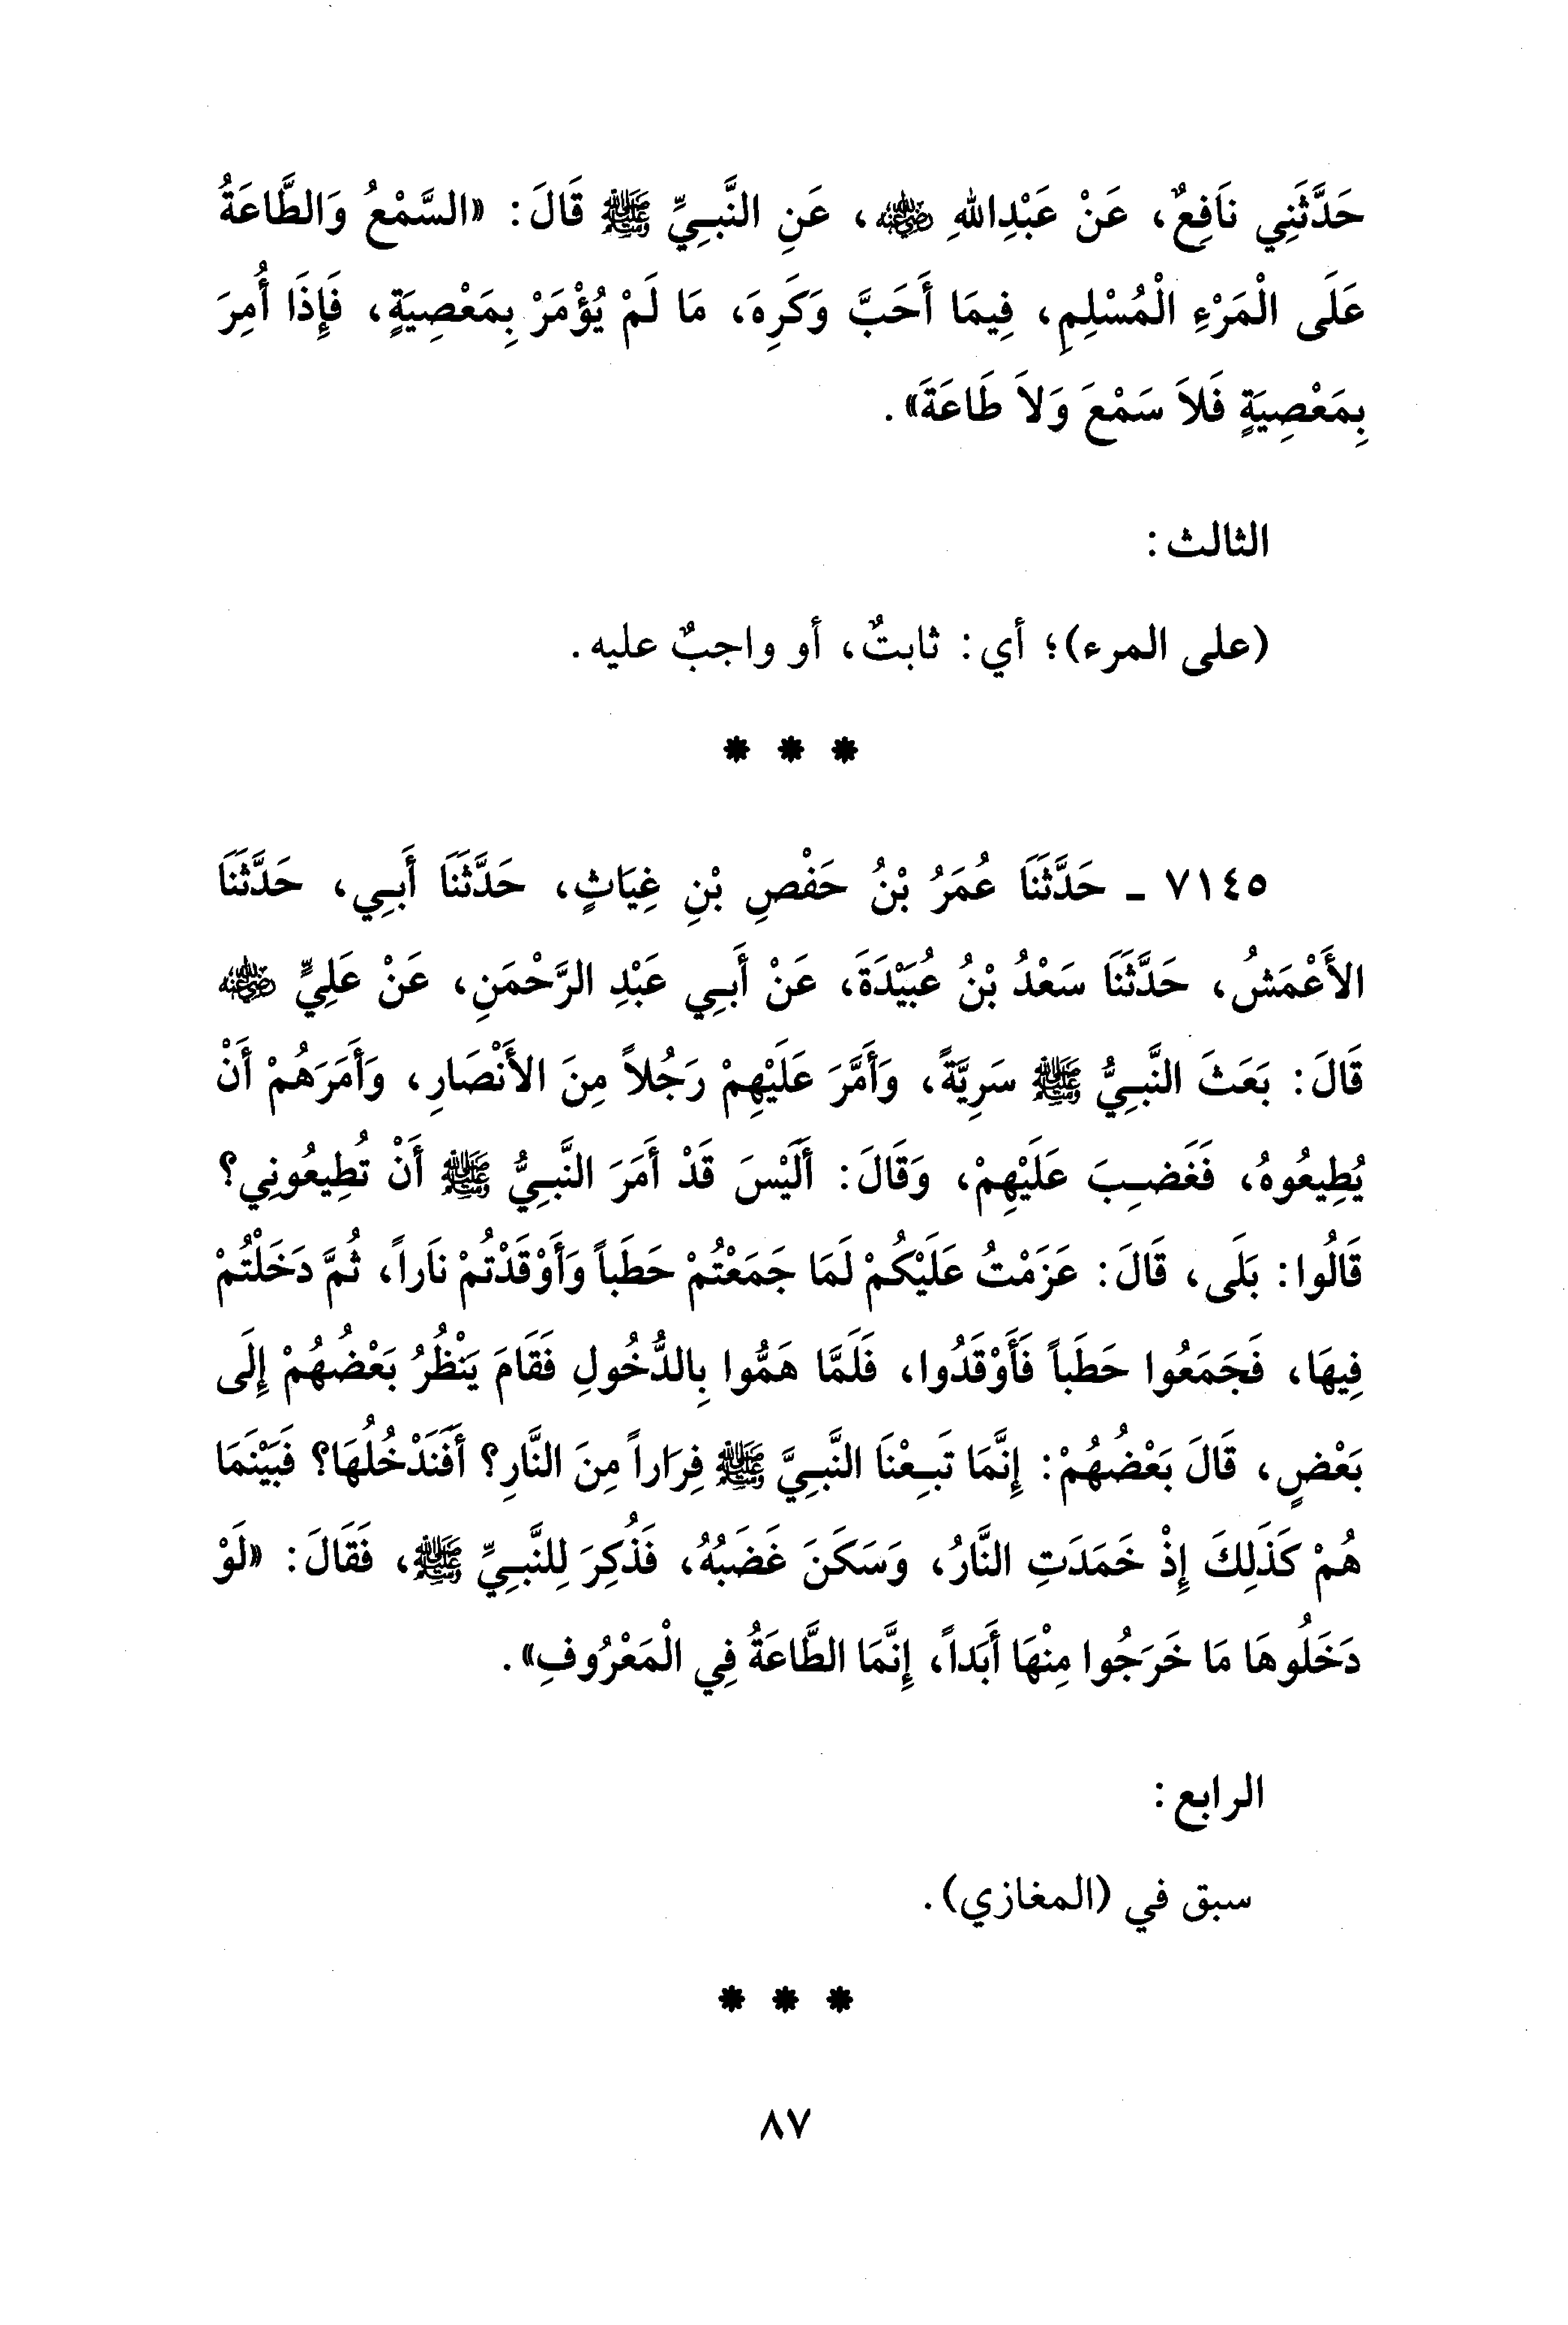 حَدَّثَنِي نَافِعٌ، عَنْ عَبْدِاللهِ رضي الله عنه، عَنِ النَّبِيِّ ﷺ قَالَ: «السَّمْعُ وَالطَّاعَةُ
عَلَى الْمَرْءِ الْمُسْلِمِ، فِيمَا أَحَبَّ وَكَرِهَ، مَا لَمْ يُؤْمَرْ بِمَعْصِيَةٍ، فَإِذَا أُمِرَ
بِمَعْصِيَةٍ فَلاَ سَمْعَ وَلاَ طَاعَةَ».
الثالث:
(على المرء)؛ أي: ثابتٌ، أو واجبٌ عليه.
* * *
٧١٤٥ - حَدَّثَنَا عُمَرُ بْنُ حَفْصِ بْنِ غِيَاثٍ، حَدَّثَنَا أَبِي، حَدَّثَنَا
الأَعْمَشُ، حَدَّثَنَا سَعْدُ بْنُ عُبَيْدَةَ، عَنْ أَبِي عَبْدِ الرَّحْمَنِ، عَنْ عَلِيٍّ رضي الله عنه
قَالَ: بَعَثَ النَّبِيُّ ﷺ سَرِيَّةً، وَأَمَّرَ عَلَيْهِمْ رَجُلاً مِنَ الأَنْصَارِ، وَأَمَرَهُمْ أَنْ
يُطِيعُوهُ، فَغَضِبَ عَلَيْهِمْ، وَقَالَ: أَلَيْسَ قَدْ أَمَرَ النَّبِيُّ ﷺ أَنْ تُطِيعُونِي؟
قَالُوا: بَلَى، قَالَ: عَزَمْتُ عَلَيْكُمْ لَمَا جَمَعْتُمْ حَطَباً وَأَوْقَدْتُمْ نَاراً، ثُمَّ دَخَلْتُمْ
فِيهَا، فَجَمَعُوا حَطَباً فَأَوْقَدُوا، فَلَمَّا هَمُّوا بِالدُّخُولِ فَقَامَ يَنْظُرُ بَعْضُهُمْ إِلَى
بَعْضٍ، قَالَ بَعْضُهُمْ: إِنَّمَا تَبِعْنَا النَّبِيَّ ﷺ فِرَاراً مِنَ النَّارِ؟ أَفَنَدْخُلُهَا؟ فَبَيْنَمَا
هُمْ كَذَلِكَ إِذْ خَمَدَتِ النَّارُ، وَسَكَنَ غَضَبُهُ، فَذُكِرَ لِلنَّبِيِّ ﷺ، فَقَالَ: «لَوْ
دَخَلُوهَا مَا خَرَجُوا مِنْهَا أَبَداً، إِنَّمَا الطَّاعَةُ فِي الْمَعْرُوفِ».
الرابع:
سبق في (المغازي).
* * *
٨٧